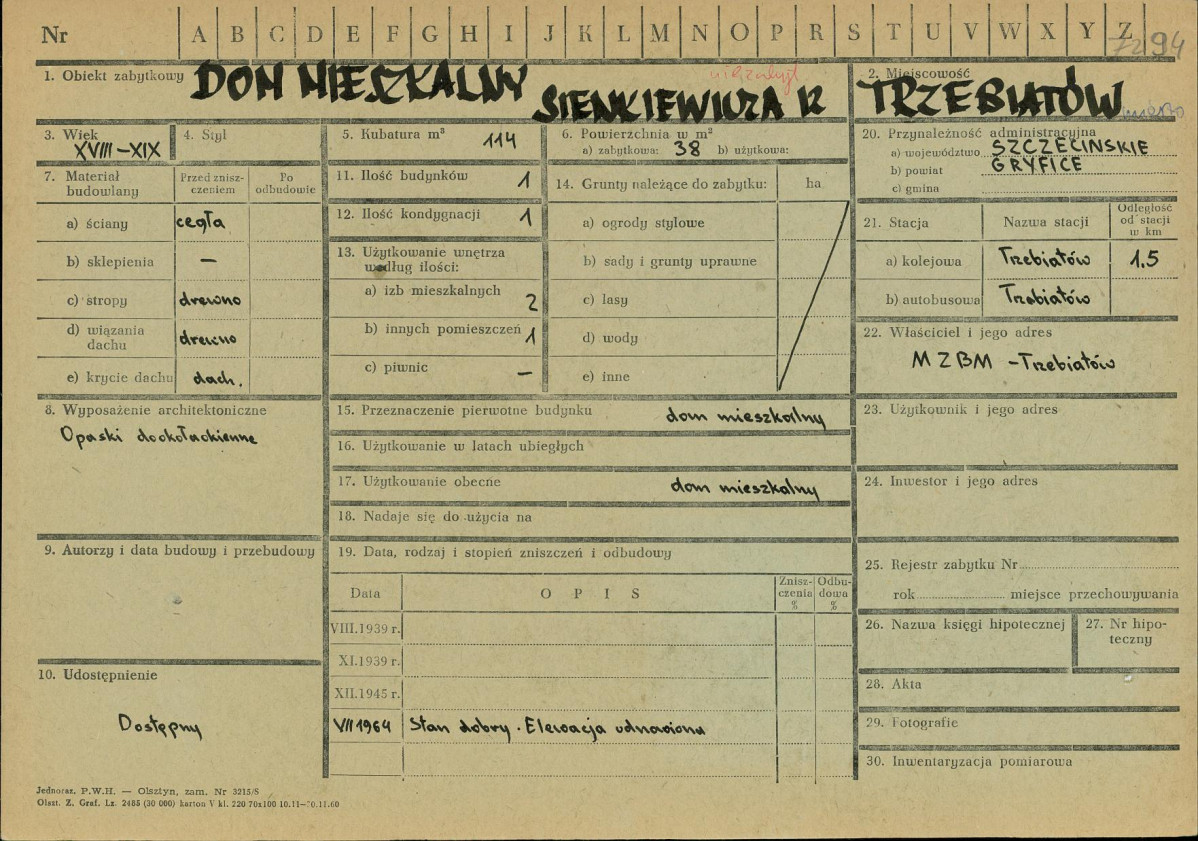 Nr A B C D E F G H I J K L M N O P R S T U V W X Y Z 7294
1. Obiekt zabytkowy DOM MIESZKALNY
SIENKIEWICZA 12
2. Miejscowość
TRZEBIATÓW
miasto
3. Wiek
XVIII–XIX
4. Styl
5. Kubatura m³
114
6. Powierzchnia w m²
a) zabytkowa: 38 b) użytkowa:
20. Przynależność administracyjna
a) województwo SZCZECIŃSKIE
b) powiat GRYFICE
c) gmina
7. Materiał budowlany
Przed znisz-
czeniem
Po
odbudowie
a) ściany cegła
b) sklepienia –
c) stropy drewno
d) wiązania
dachu drewno
e) krycie dachu dach.
11. Ilość budynków 1
12. Ilość kondygnacji 1
13. Użytkowanie wnętrza
według ilości:
a) izb mieszkalnych 2
b) innych pomieszczeń 1
c) piwnic –
14. Grunty należące do zabytku: ha
a) ogrody stylowe
b) sady i grunty uprawne
c) lasy
d) wody
e) inne
21. Stacja Nazwa stacji
Odległość
od stacji
w km
a) kolejowa Trzebiatów 1.5
b) autobusowa Trzebiatów
22. Właściciel i jego adres
MZBM – Trzebiatów
8. Wyposażenie architektoniczne
Opaski dookołaokienne
15. Przeznaczenie pierwotne budynku dom mieszkalny
16. Użytkowanie w latach ubiegłych
17. Użytkowanie obecne dom mieszkalny
18. Nadaje się do użycia na
23. Użytkownik i jego adres
24. Inwestor i jego adres
9. Autorzy i data budowy i przebudowy
19. Data, rodzaj i stopień zniszczeń i odbudowy
Data O P I S
Znisz-
czenia
%
Odbu-
dowa
%
VIII.1939 r.
XI.1939 r.
XII.1945 r.
VII 1964 Stan dobry. Elewacja odnawiona
25. Rejestr zabytku Nr
rok miejsce przechowywania
26. Nazwa księgi hipotecznej
27. Nr hipo-
teczny
10. Udostępnienie
Dostępny
28. Akta
29. Fotografie
30. Inwentaryzacja pomiarowa
Jednoraz. P.W.H. — Olsztyn, zam. Nr 3215/S
Olszt. Z. Graf. Lz. 2485 (30 000) karton V kl. 220 70x100 10.11—30.11.60